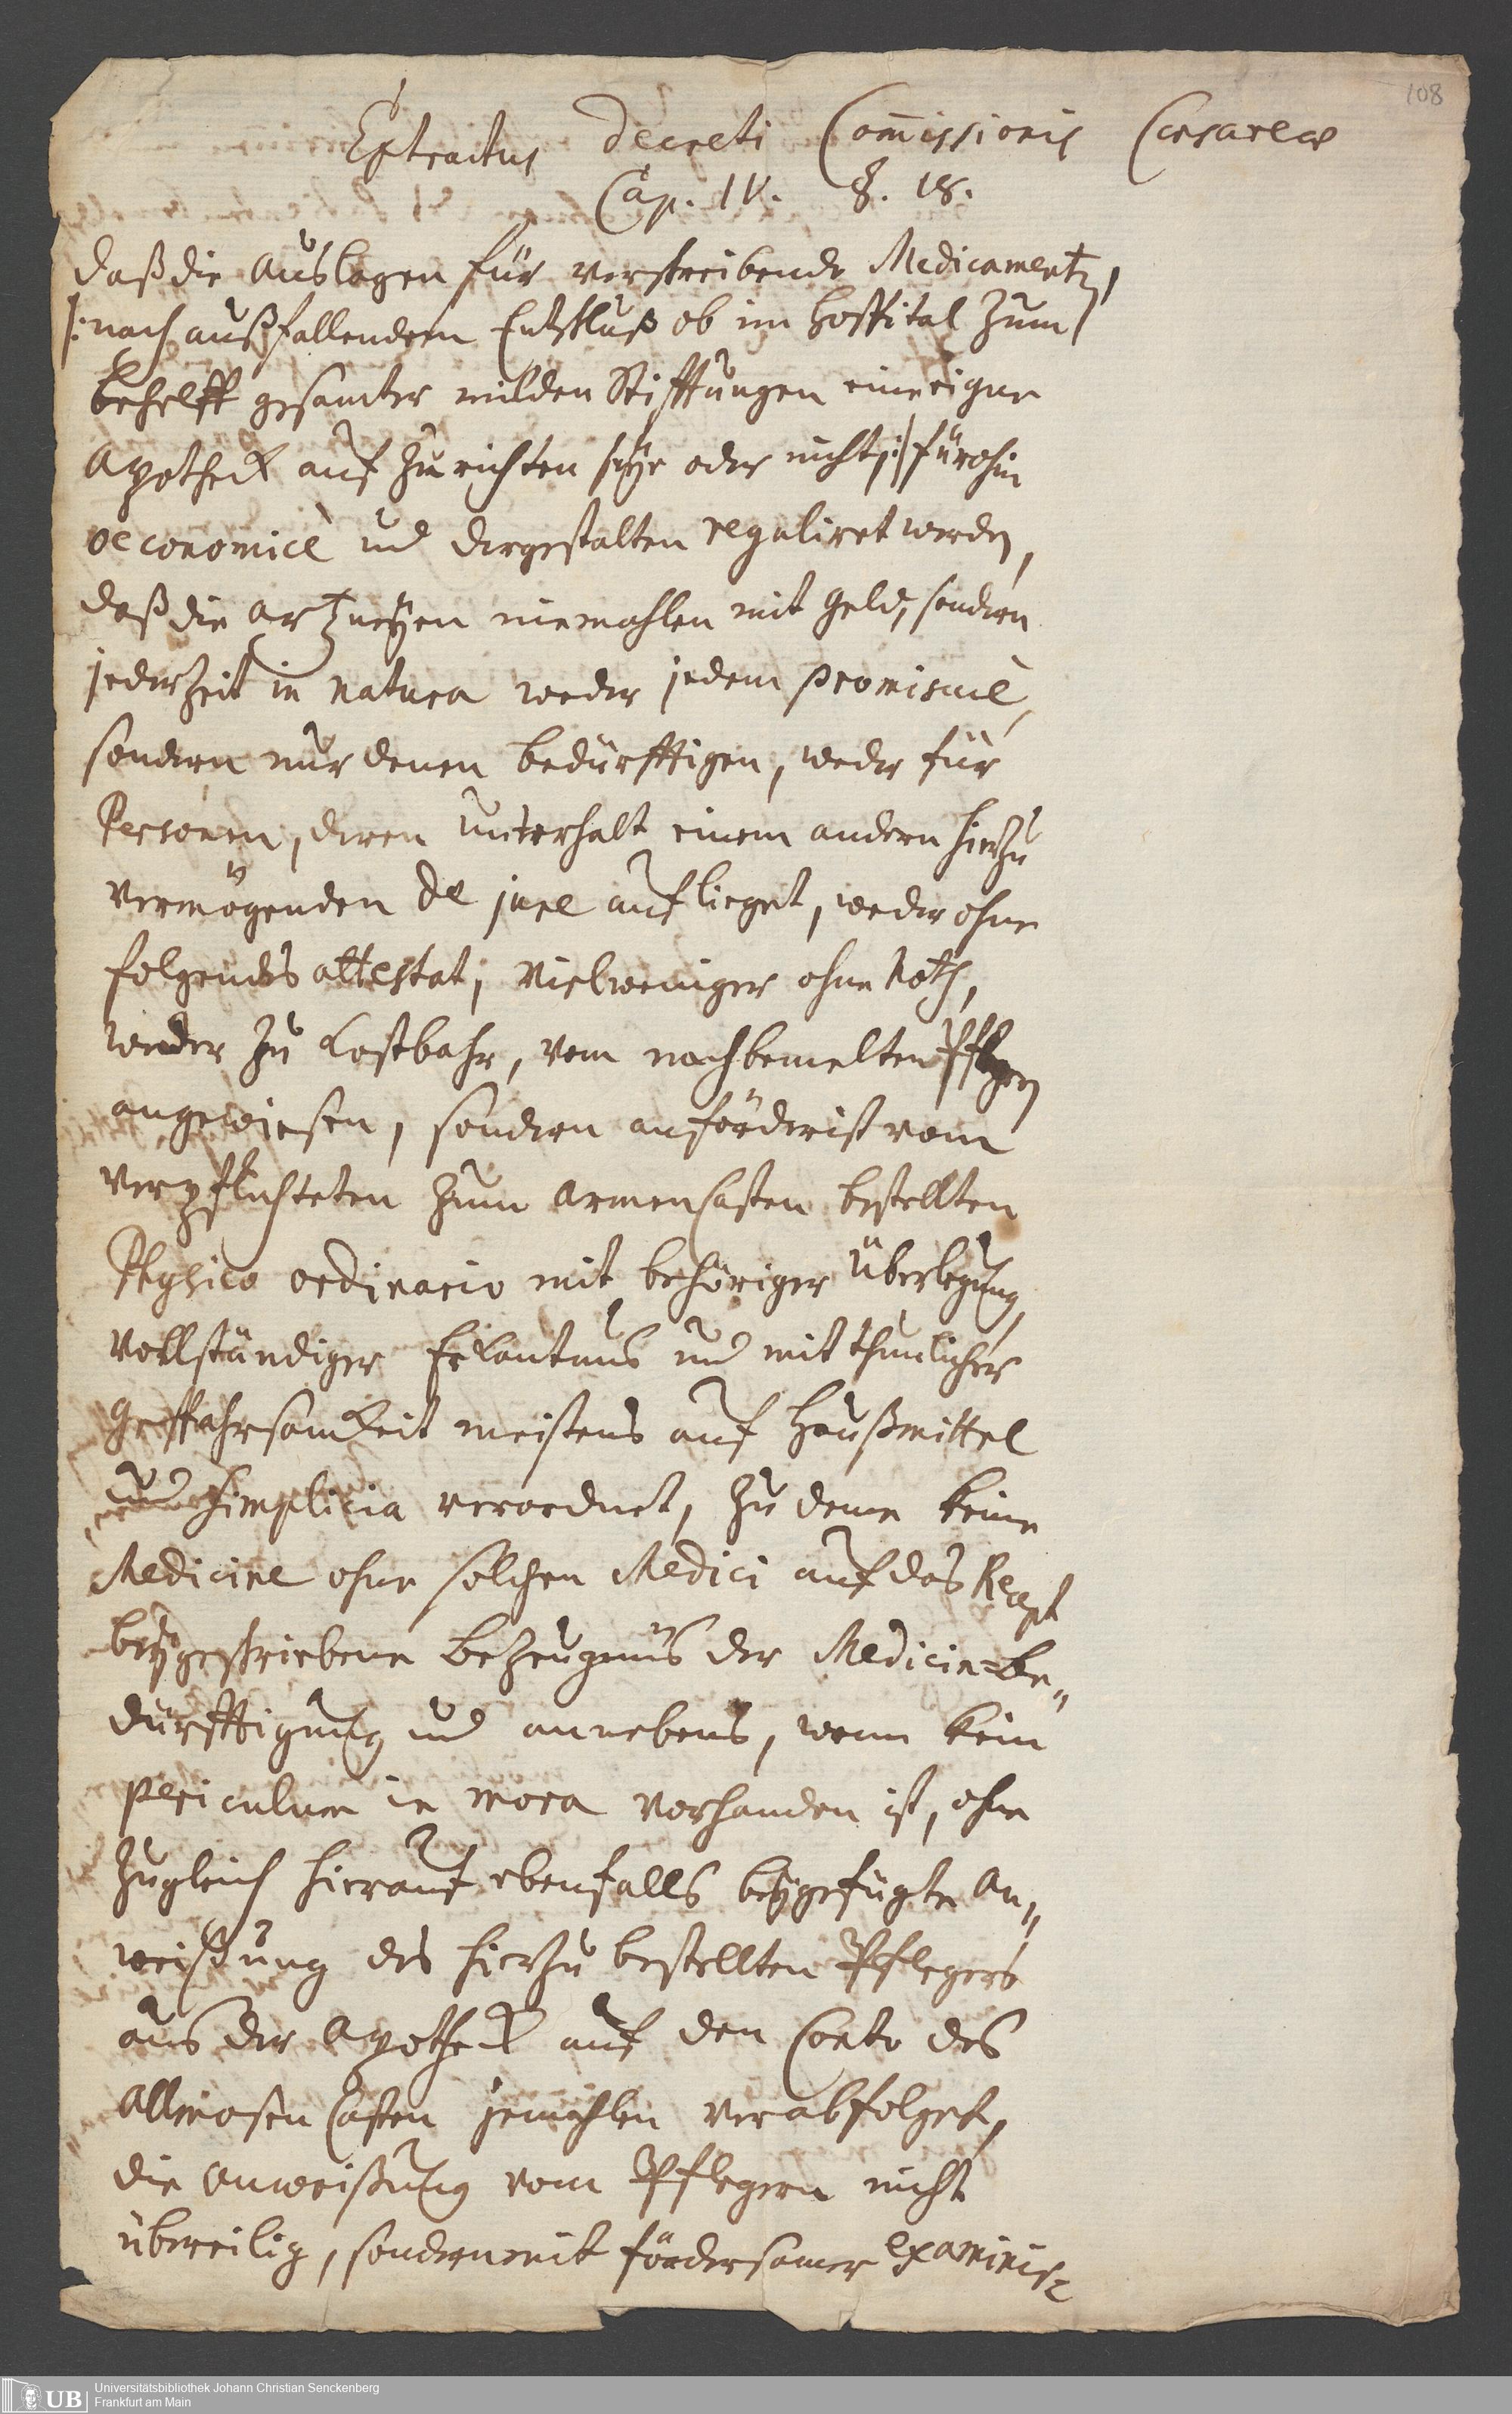 108
Extractus Decreti Commissionis Caesareae
Cap. IV. §. 18.
daß die Auslagen für verschreibende Medicamente,
|: nach außfallendem Entschluß ob im Hospital zum
behelff gesamter milden Stifftungen eine eigne
Apotheck auf zurichten seye oder nicht :| fürohin
oeconomicè und dergestalten reguliret werden,
daß die Artzneyen niemahlen mit Geld, sondern
jederzeit in natura weder jedem promiscuè,
sondern nur denen bedürfftigen, weder für
Personen, deren Unterhalt einem andern hierzu
vermögenden de jure auflieget, weder ohne
folgendes attestat, vielweniger ohne Noth,
weder zu kostbahr, vom nachbemelten Pflegern
angewiesen, sondern anforderist vom
verpflichteten zum Armen Casten bestellten
Physico ordinario mit behöriger Überlegung,
vollständiger Erkantnus und mit thunlicher
Gespahrsamkeit meistens auf Haußmittel
und Simplicia verordnet, zu deme keine
Medicine ohne solchen Medici auf das Recept
beygeschriebene Bezeugnüs der Medicin-Be„
dürfftigung und annebens, wann kein
periculum in mora vorhanden ist, ohne
zugleich hierauf ebenfalls beygefügte An„
weißung des hierzu bestellten Pflegers
aus der Apotheck auf den Conto des
Allmosen Casten jemahlen verabfolget,
die Anweißung vom Pflegern nicht
übereilig, sondern mit fördersamer Examinir-
UB
Universitätsbibliothek Johann Christian Senckenberg
Frankfurt am Main